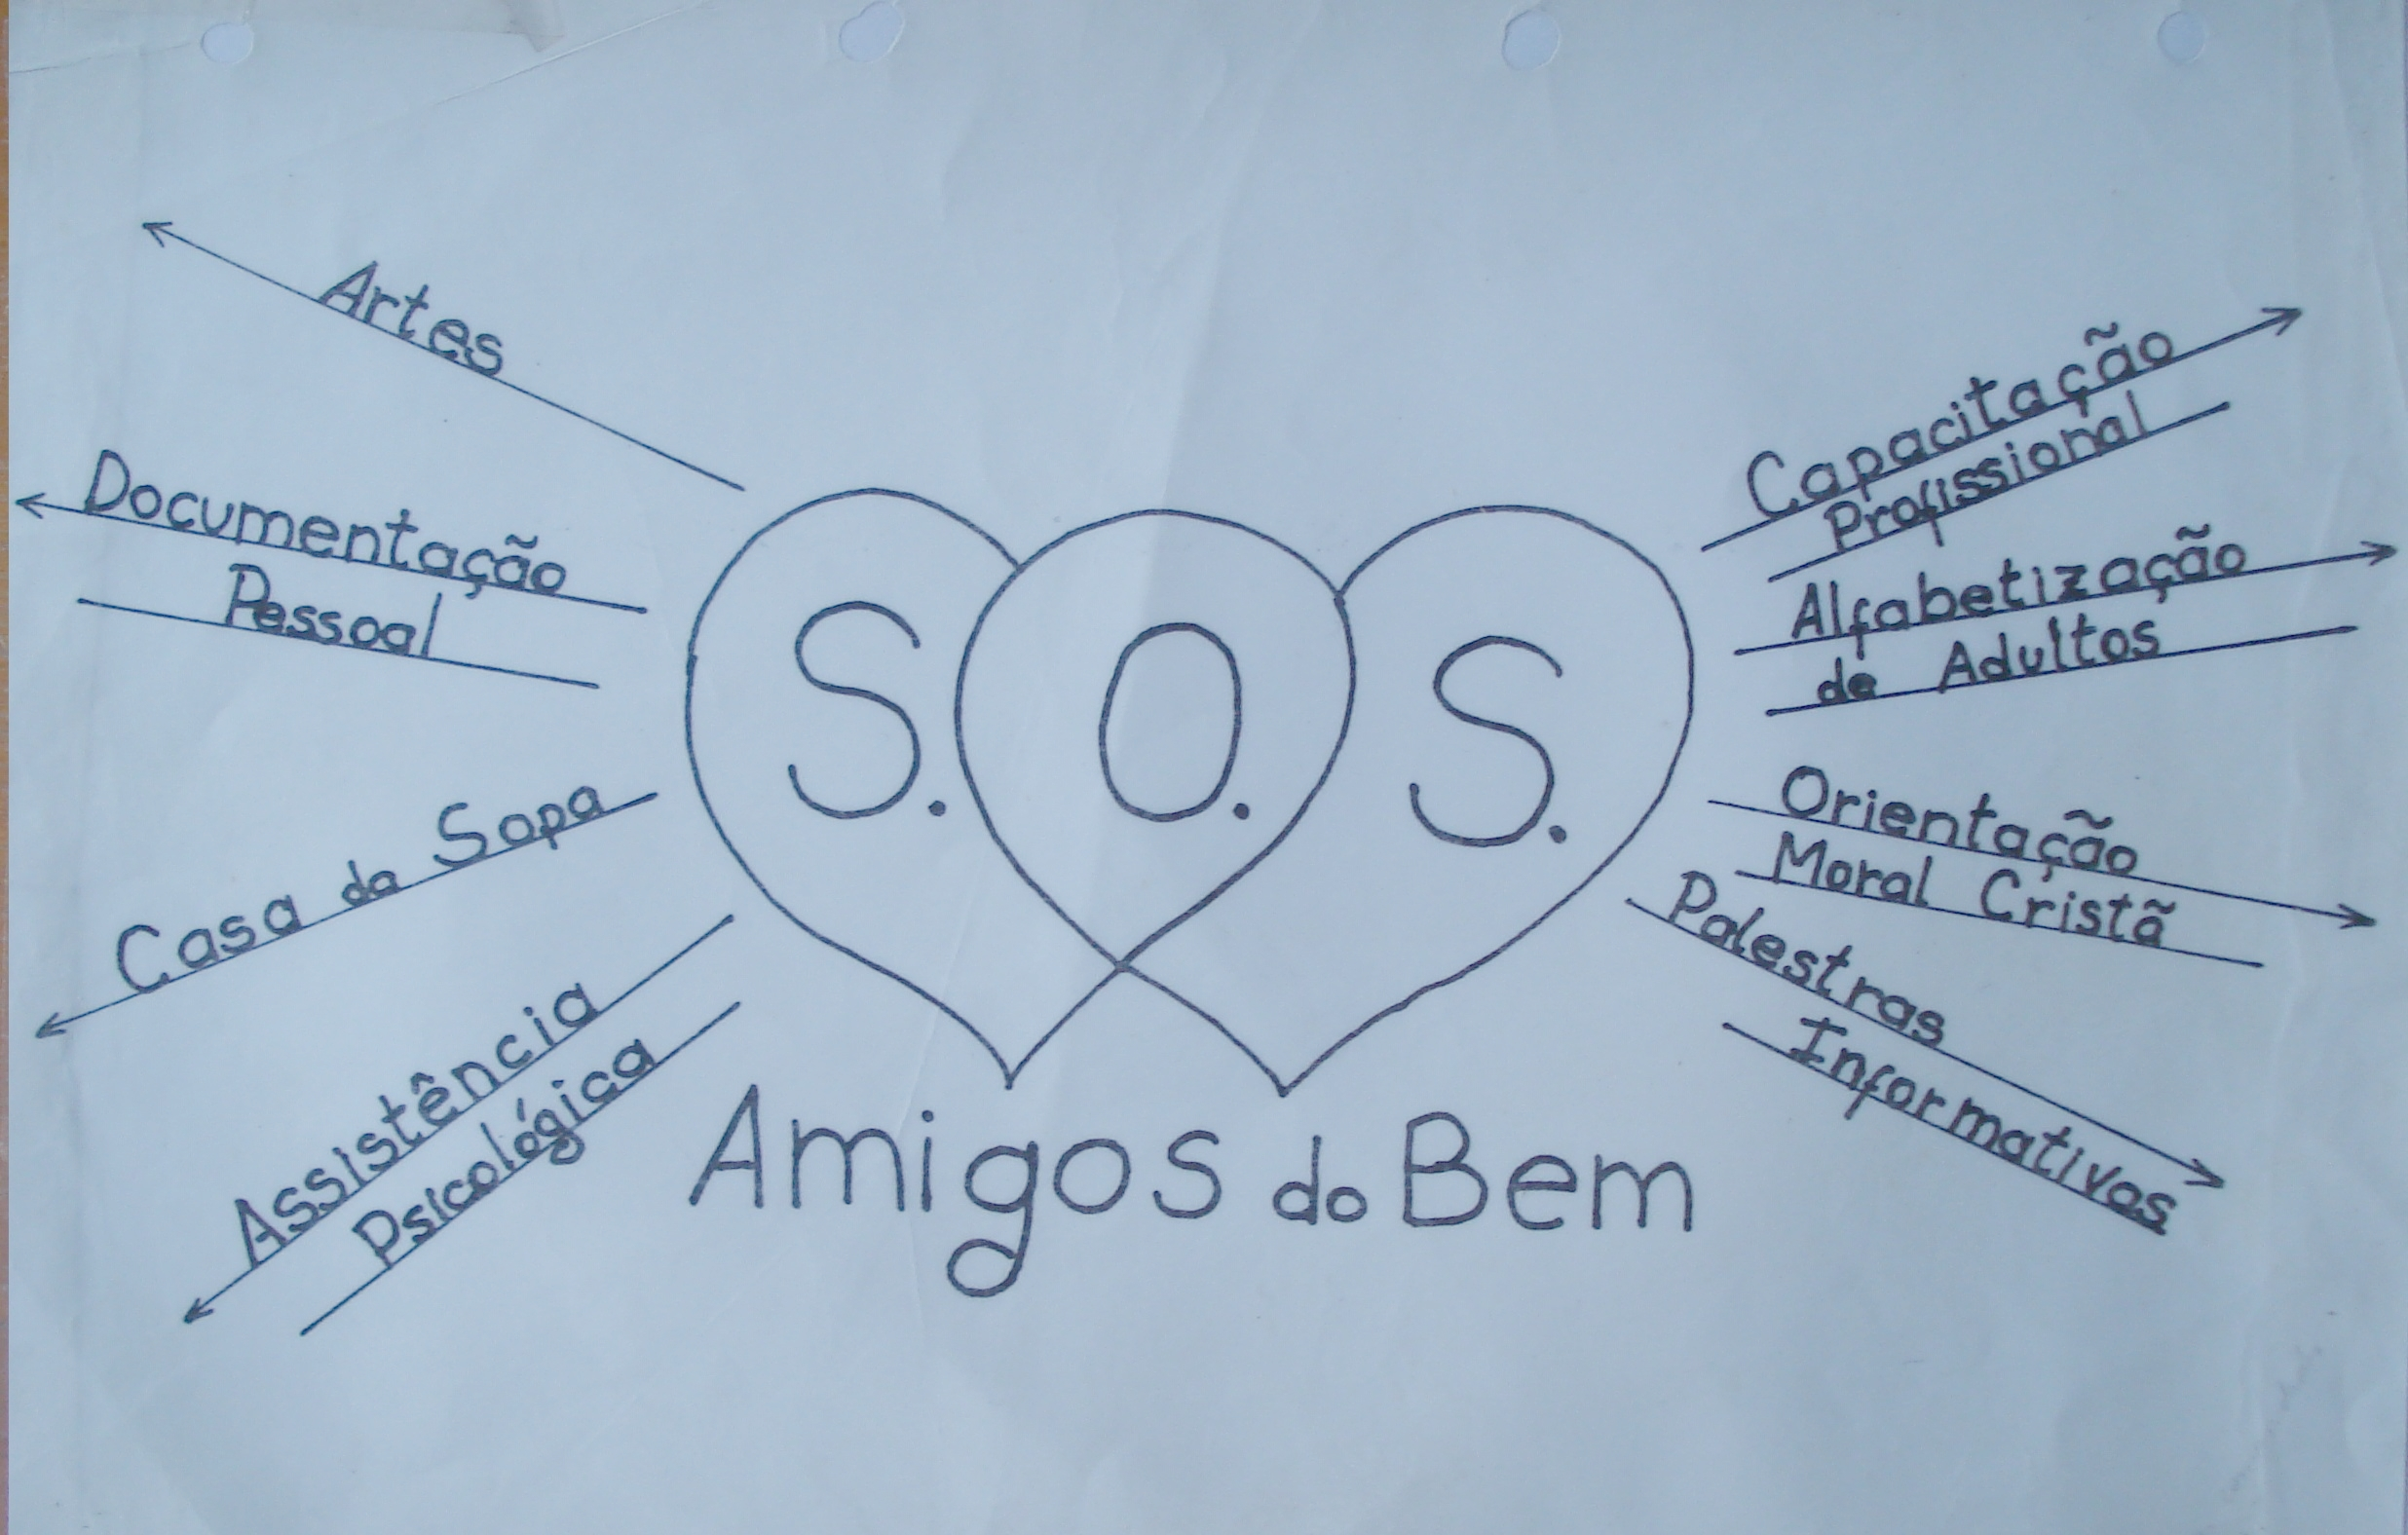 Artes
Documentação
Pessoal
Casa da Sopa
Assistência
Psicológica
S. O. S.
Amigos do Bem
Capacitação
Profissional
Alfabetização
de Adultos
Orientação
Moral Cristã
Palestras
Informativos